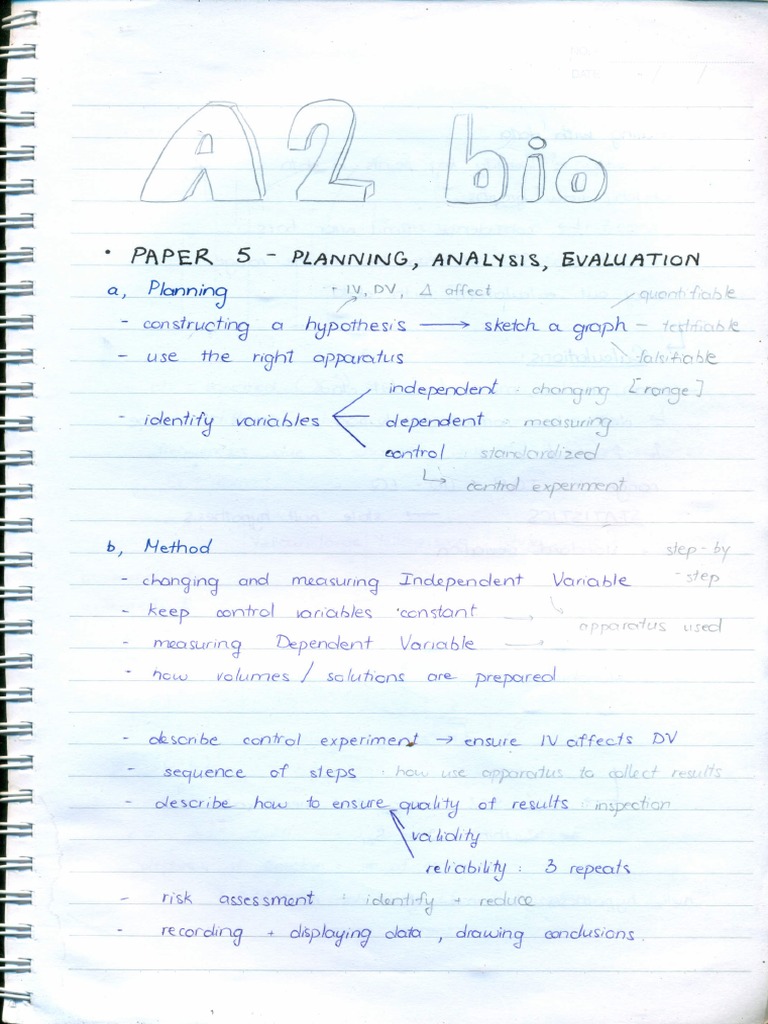 A2 bio
• PAPER 5 - PLANNING, ANALYSIS, EVALUATION
a, Planning
+ IV, DV, Δ affect
quantifiable
- constructing a hypothesis → sketch a graph - testifiable
- use the right apparatus
falsifiable
independent : changing [range]
- identify variables
dependent : measuring
control : standardized
↳ control experiment
b, Method
step-by-step
- changing and measuring Independent Variable
- keep control variables constant →
apparatus used
- measuring Dependent Variable →
- how volumes / solutions are prepared
- describe control experiment → ensure IV affects DV
- sequence of steps : how use apparatus to collect results
- describe how to ensure quality of results : inspection
validity
reliability : 3 repeats
- risk assessment : identify + reduce
- recording + displaying data, drawing conclusions.